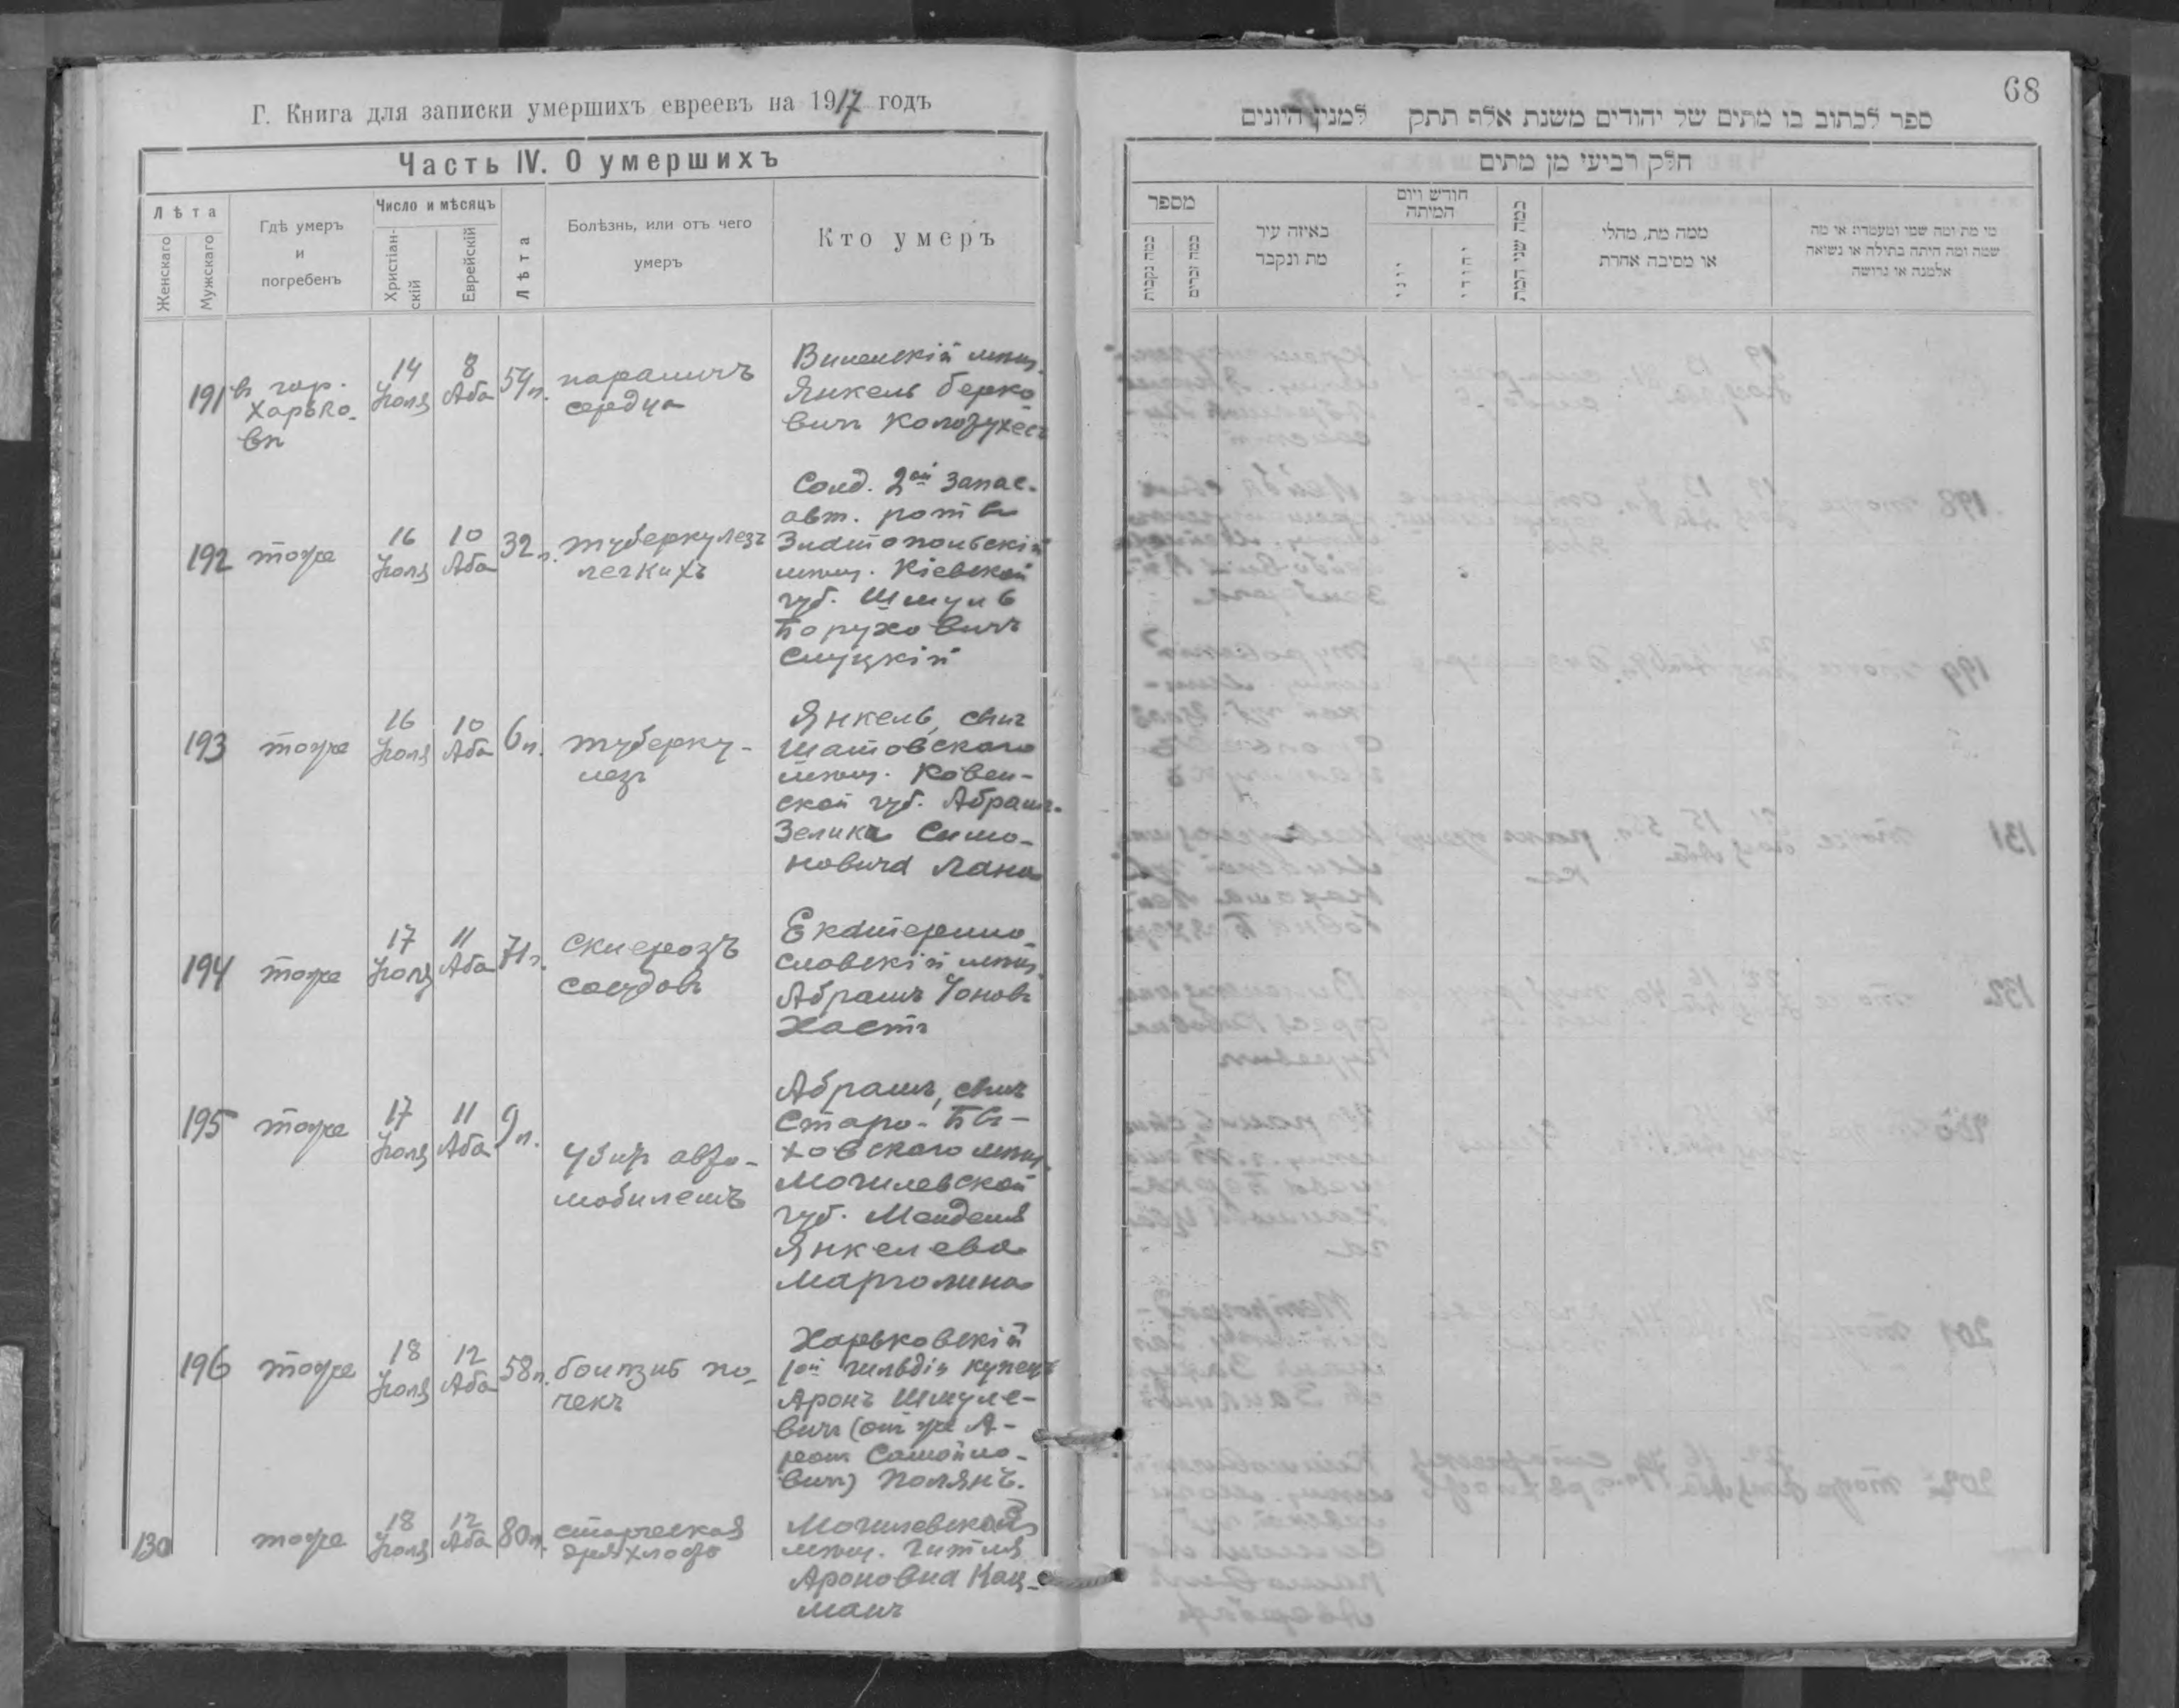 Г. Книга для записки умершихъ евреевъ на 1917 годъ
Часть IV. О умершихъ
Лѣта
Женскаго
Мужскаго
Гдѣ умеръ
и
погребенъ
Число и мѣсяцъ
Христіан-
скій
Еврейскій
Лѣта
Болѣзнь, или отъ чего
умеръ
Кто умеръ
191
въ гор.
Харько-
вѣ
14
Іюля
8
Аба
54 л.
параличъ
сердца
Виленскій мѣщ.
Янкель Берко
вичъ
192
тоже
16
Іюля
10
Аба
32 л.
туберкулезъ
легкихъ
Солд. 2ой запас.
авт. роты
Златопольскій
мѣщ. Кіевской
губ. Шмуль
Боруховичъ
Слуцкій
193
тоже
16
Іюля
10
Аба
6 л.
туберку-
лезъ
Янкель, сынъ
Шатовскаго
мѣщ. Ковен-
ской губ. Абрама-
Зелика Симо-
новича Лана
194
тоже
17
Іюля
11
Аба
71 л.
склерозъ
сосудовъ
Екатерино-
славскій мѣщ.
Абрамъ Іоновъ
Хаетъ
195
тоже
17
Іюля
11
Аба
9 л.
убитъ авто-
мобилемъ
Абрамъ, сынъ
Старо-Бы-
ховскаго мѣщ.
Могилевской
губ. Менделя
Янкелева
Марголина
196
тоже
18
Іюля
12
Аба
58 л.
болѣзнь по-
чекъ
Харьковскій
1ой гильдіи купецъ
Аронъ Шмуле-
вичъ (онъ же А-
ронъ Самойло-
вичъ) Полякъ.
130
тоже
18
Іюля
12
Аба
80 л.
старческая
дряхлость
Могилевская
мѣщ. Гитля
Ароновна Кац-
манъ
68
ספר לכתוב בו מתים של יהודים משנת אלף תתק למנין היונים
חלק רביעי מן מתים
מספר
כמה נקבות
כמה זכרים
באיזה עיר
מת ונקבר
חודש ויום
המיתה
יוני
יהודי
כמה שני המת
ממה מת, מחלי
או מסיבה אחרת
מי מת ומה שמו ומעמדו: או מה
שמה ומה היתה בתולה או נשואה
אלמנה או גרושה